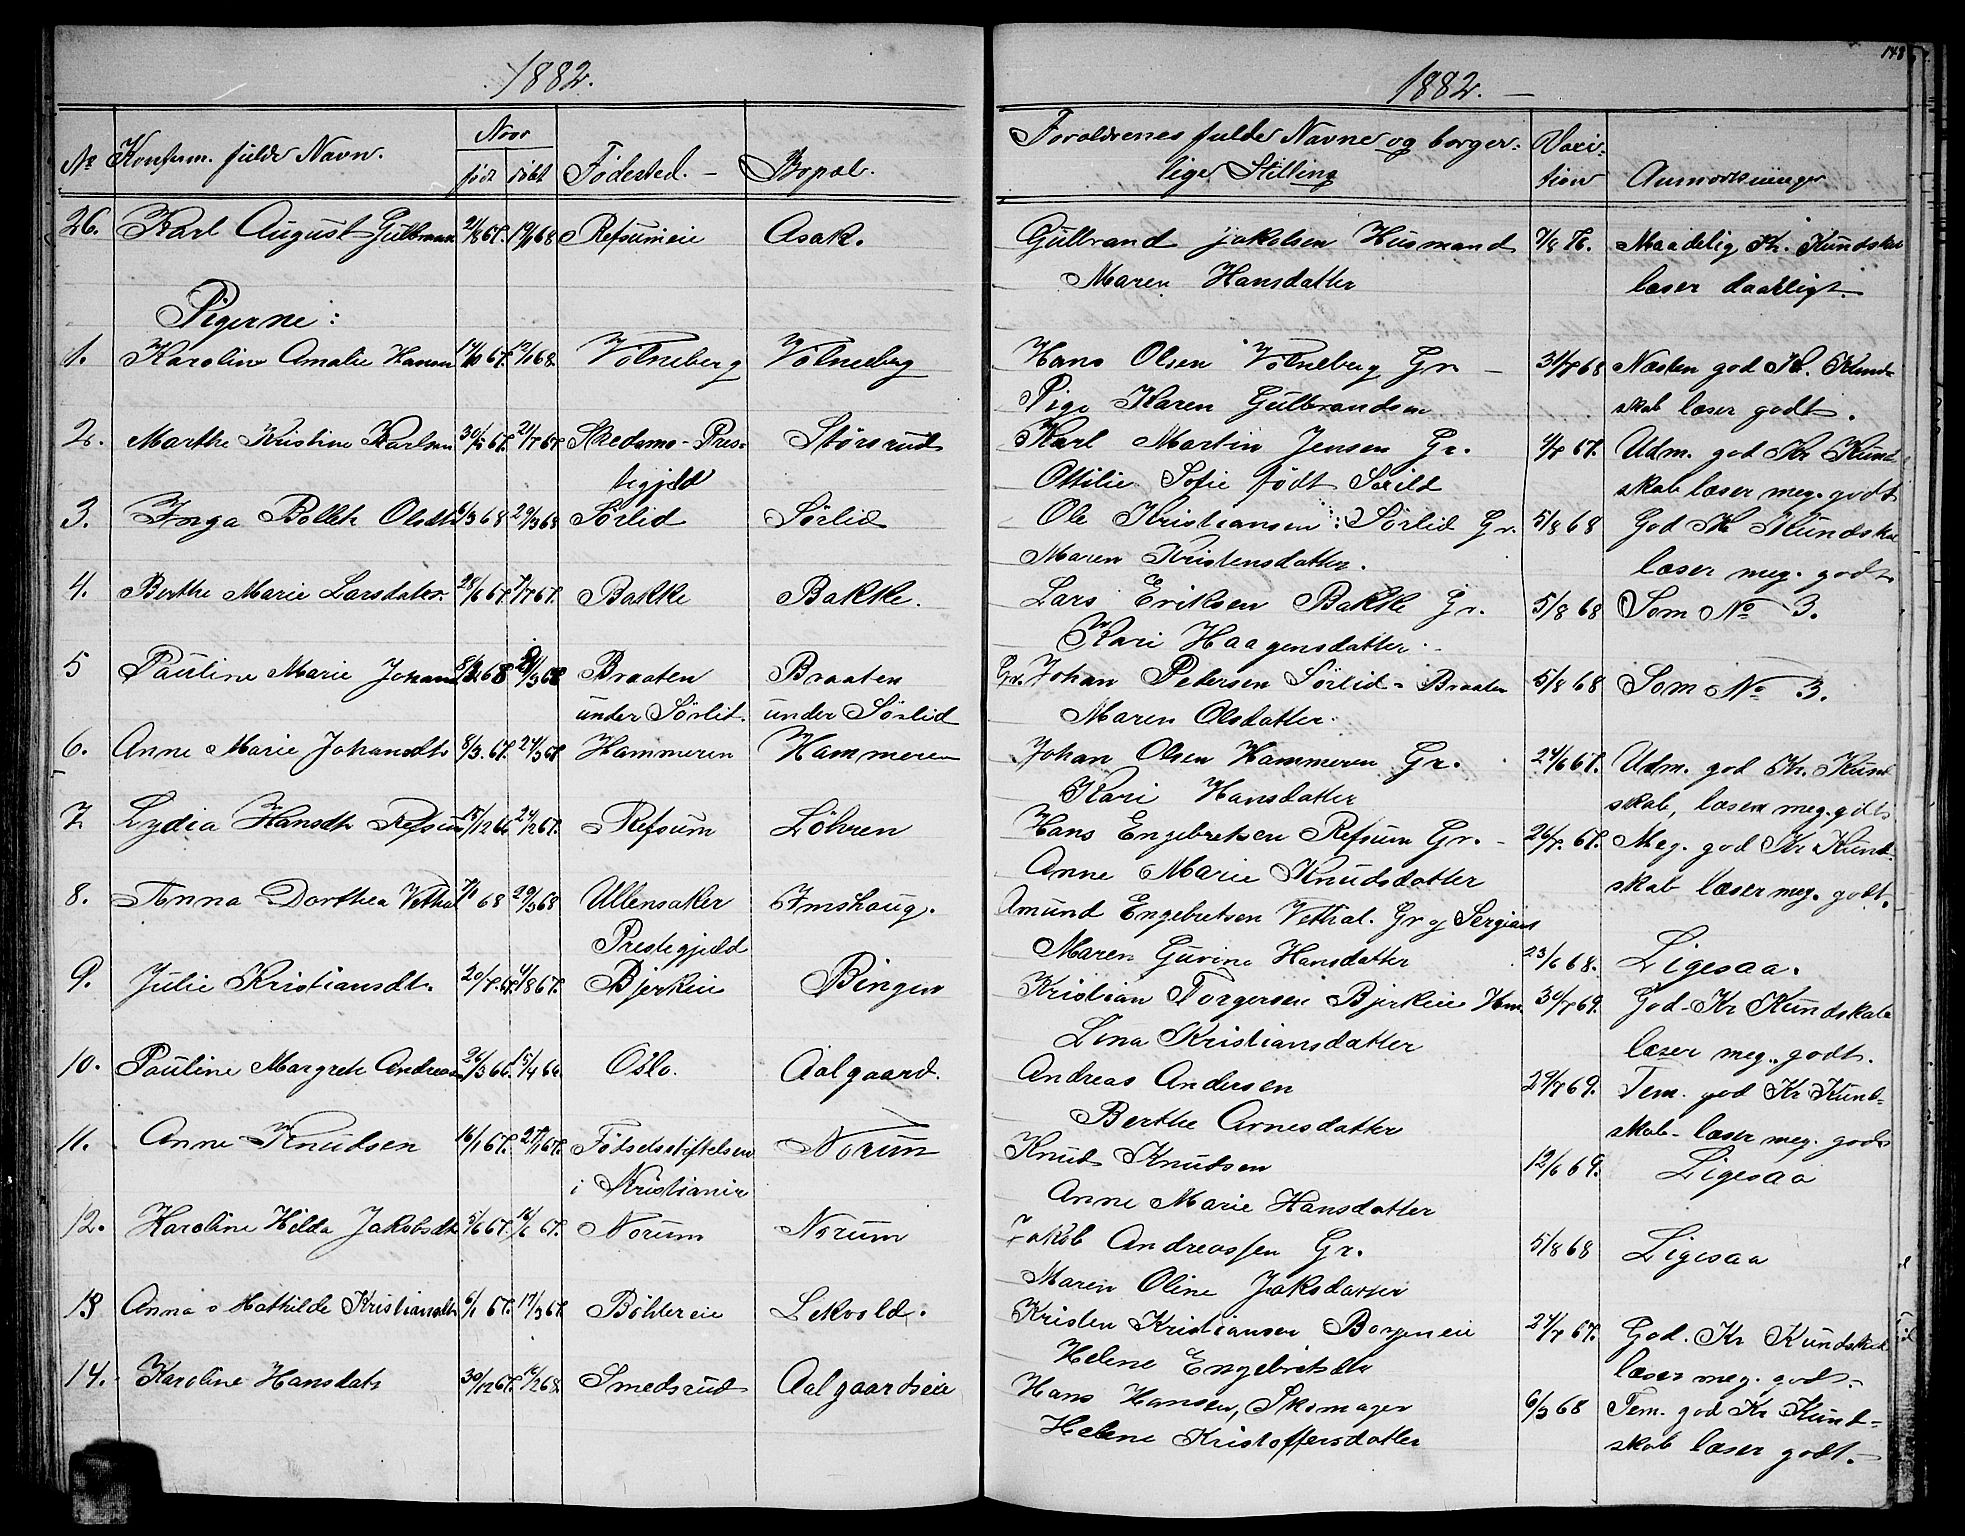 1882.
No Konferm. fulde Navn. Naar født døbt Fødested. Bopæl.
26. Karl August Gulbrans 21/8 67. 19/1 68 Refsumeie Asak.
Pigerne:
1. Karoline Amalie Hansen 17/10 67. 12/1 68. Volneberg Volneberg
2. Marthe Kristine Karlsen 30/5 67. 21/7 67. Skedsmo-Pres-
tegjeld Størsrud
3. Inga Bolleth Olsdtr 6/3 68 29/3 68 Sørlid Sørlid
4. Berthe Marie Larsdatr. 28/6 67. Bakke Bakke.
5 Pauline Marie Johans Braaten Braaten
under Sørlid. under Sørlid
6. Anne Marie Johansdtr 8/3. 67. 24/3 67. Hammeren Hammeren
7. Lydia Hansdtr Refsum 18/12 66 24/2 67. Refsum Løhren
8. Anna Dorthea Vethal 7/1 68 29/3 68 Ullensaker Imshaug.
Prestegjeld
9. Julie Kristiansdtr. 20/7. 67. 4/8 67. Bjerkeie Bingen
10. Pauline Margrete Andreas 26/3 66. 15/4 66. Oslo. Aalgaard.
11. Anne Knudsen 16/1 67. 27/1 67. Fødselsstiftelsen Norum
i Kristiania
12. Karoline Hilda Jakobsdtr 5/6 67. 16/6 67. Norum Norum
13 Anna Mathilde Kristiansdtr 6/1 67. 17/3 67. Böhlereie Lekvold.
14. Karoline Hansdatr 30/12 67. 16/2 68. Smedsrud Aalgaardseie
148
1882.
Foraldrenes fulde Navne og borger-
lige Stilling Vaci-
tion Anmærkninger
Gulbrand Jakobsen Husmand 7/8 76. Maadelig Kr. Kundskab
Maren Hansdatter læser daarligt.
Hans Olsen Volneberg Gr. 31/7 68 Næsten god Kr. Kund-
Pige Karen Gulbrandsen skab læser godt.
Karl Martin Jensen Gr. 67. Udm. god Kr Kund
Ottilie Sofie født skab læser meg. godt
Ole Kristiansen Sørlid Gr. 5/8 68 God Kr Kundskab
Maren Kristensdatter. læser meg. godt
Lars Eriksen Bakke Gr. 5/8 68 Som No 3.
Kari Haagensdatter.
Gr. Johan Pedersen Sørlid-Braaten 5/8 68 Som No 3.
Maren Olsdatter.
Johan Olsen Hammeren Gr. 24/6 67. Udm. god Kr. Kund
Kari Hansdatter skab, læser meg. godt
Hans Engebretsen Refsum Gr. 26/7. 67. Meg. god Kr Kund-
Anne Marie Knudsdatter skab læser meg. godt.
Amund Engebretsen Vethal. Gr og Sergiant
Maren Guvine Hansdatter 23/6 68. Ligesaa.
Kristian Torgersen Bjerkeie Hm. 30/7 69. God Kr Kundskab
Lina Kristiansdatter læser meg. godt.
Andreas Andersen 29/7 69. Tem. god Kr Kund-
Berthe Arnesdatter skab læser meg. godt
Knud Knudsen 12/6 69. Ligesaa
Anne Marie Hansdatter
Jakob Andreassen Gr. 5/8 68 Ligesaa
Maren Oline
Kristen Kristiansen Borgeneie 24/7 67. God. Kr Kundskab
Helene Engebretsdtr læser meg. godt.
Hans Hansen, Skomager 6/3 68 Tem. god Kr Kund-
Helene Kristoffersdatter skab læser godt.